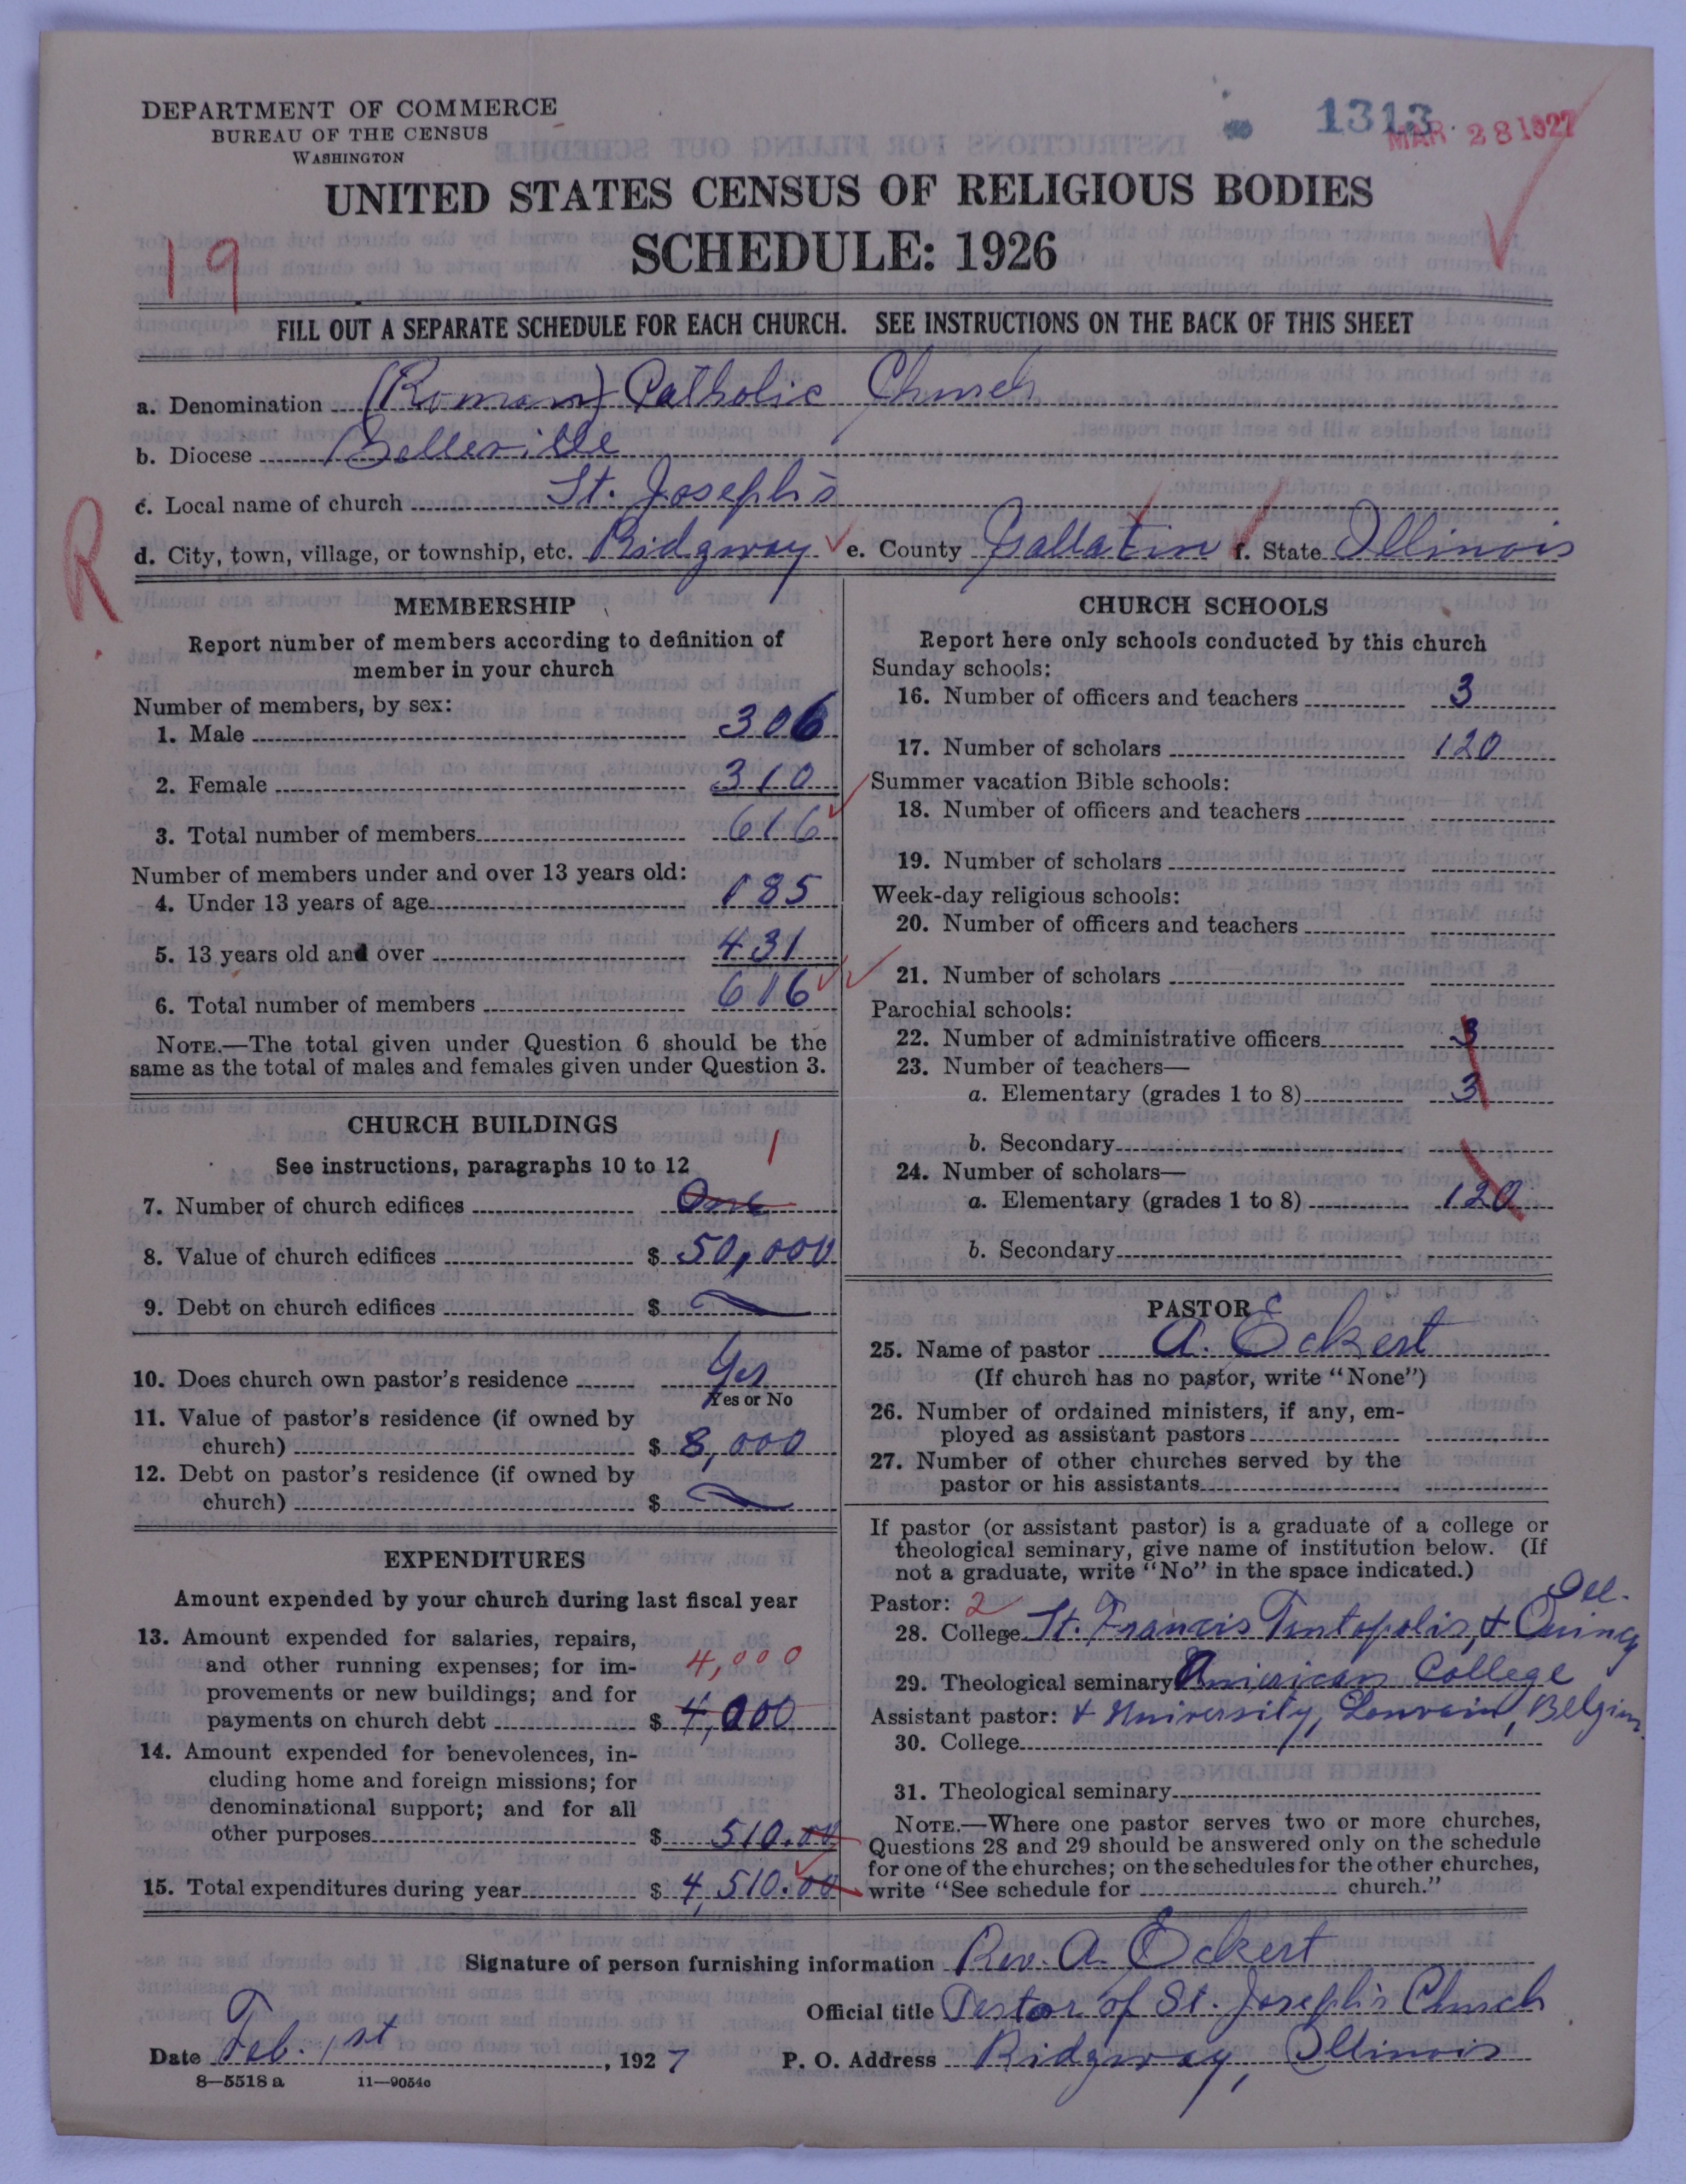 DEPARTMENT OF COMMERCE
BUREAU OF THE CENSUS
WASHINGTON
1313
MAR 28 1927
UNITED STATES CENSUS OF RELIGIOUS BODIES
SCHEDULE: 1926
19
FILL OUT A SEPARATE SCHEDULE FOR EACH CHURCH. SEE INSTRUCTIONS ON THE BACK OF THIS SHEET
a. Denomination (Roman) Catholic Church
b. Diocese Belleville
c. Local name of church St. Joseph's
R
d. City, town, village, or township, etc. Ridgway e. County Gallatin f. State Illinois
MEMBERSHIP
Report number of members according to definition of
member in your church
Number of members, by sex:
1. Male 306
2. Female 310
3. Total number of members 616
Number of members under and over 13 years old:
4. Under 13 years of age 185
5. 13 years old and over 431
6. Total number of members 616
NOTE.—The total given under Question 6 should be the
same as the total of males and females given under Question 3.
CHURCH BUILDINGS
See instructions, paragraphs 10 to 12
1
7. Number of church edifices One
8. Value of church edifices $ 50,000
9. Debt on church edifices $
10. Does church own pastor's residence Yes
Yes or No
11. Value of pastor's residence (if owned by
church) $ 8,000
12. Debt on pastor's residence (if owned by
church) $
EXPENDITURES
Amount expended by your church during last fiscal year
13. Amount expended for salaries, repairs,
and other running expenses; for im-
4,000
provements or new buildings; and for
payments on church debt $ 4,000
14. Amount expended for benevolences, in-
cluding home and foreign missions; for
denominational support; and for all
other purposes $ 510.00
15. Total expenditures during year $ 4,510.00
CHURCH SCHOOLS
Report here only schools conducted by this church
Sunday schools:
16. Number of officers and teachers 3
17. Number of scholars 120
Summer vacation Bible schools:
18. Number of officers and teachers
19. Number of scholars
Week-day religious schools:
20. Number of officers and teachers
21. Number of scholars
Parochial schools:
22. Number of administrative officers 3
23. Number of teachers—
a. Elementary (grades 1 to 8) 3
b. Secondary
24. Number of scholars—
a. Elementary (grades 1 to 8) 120
b. Secondary
PASTOR
25. Name of pastor A. Eckert
(If church has no pastor, write "None")
26. Number of ordained ministers, if any, em-
ployed as assistant pastors
27. Number of other churches served by the
pastor or his assistants
If pastor (or assistant pastor) is a graduate of a college or
theological seminary, give name of institution below. (If
not a graduate, write "No" in the space indicated.)
Pastor: 2
Ill.
28. College St. Francis Teutopolis, & Quincy
29. Theological seminary American College
Assistant pastor: & University, Louvain, Belgium
30. College
31. Theological seminary
NOTE.—Where one pastor serves two or more churches,
Questions 28 and 29 should be answered only on the schedule
for one of the churches; on the schedules for the other churches,
write "See schedule for church."
Signature of person furnishing information Rev. A. Eckert
Official title Pastor of St. Joseph's Church
Date Feb. 1st, 1927
P. O. Address Ridgway, Illinois
8—5518 a 11—9054c